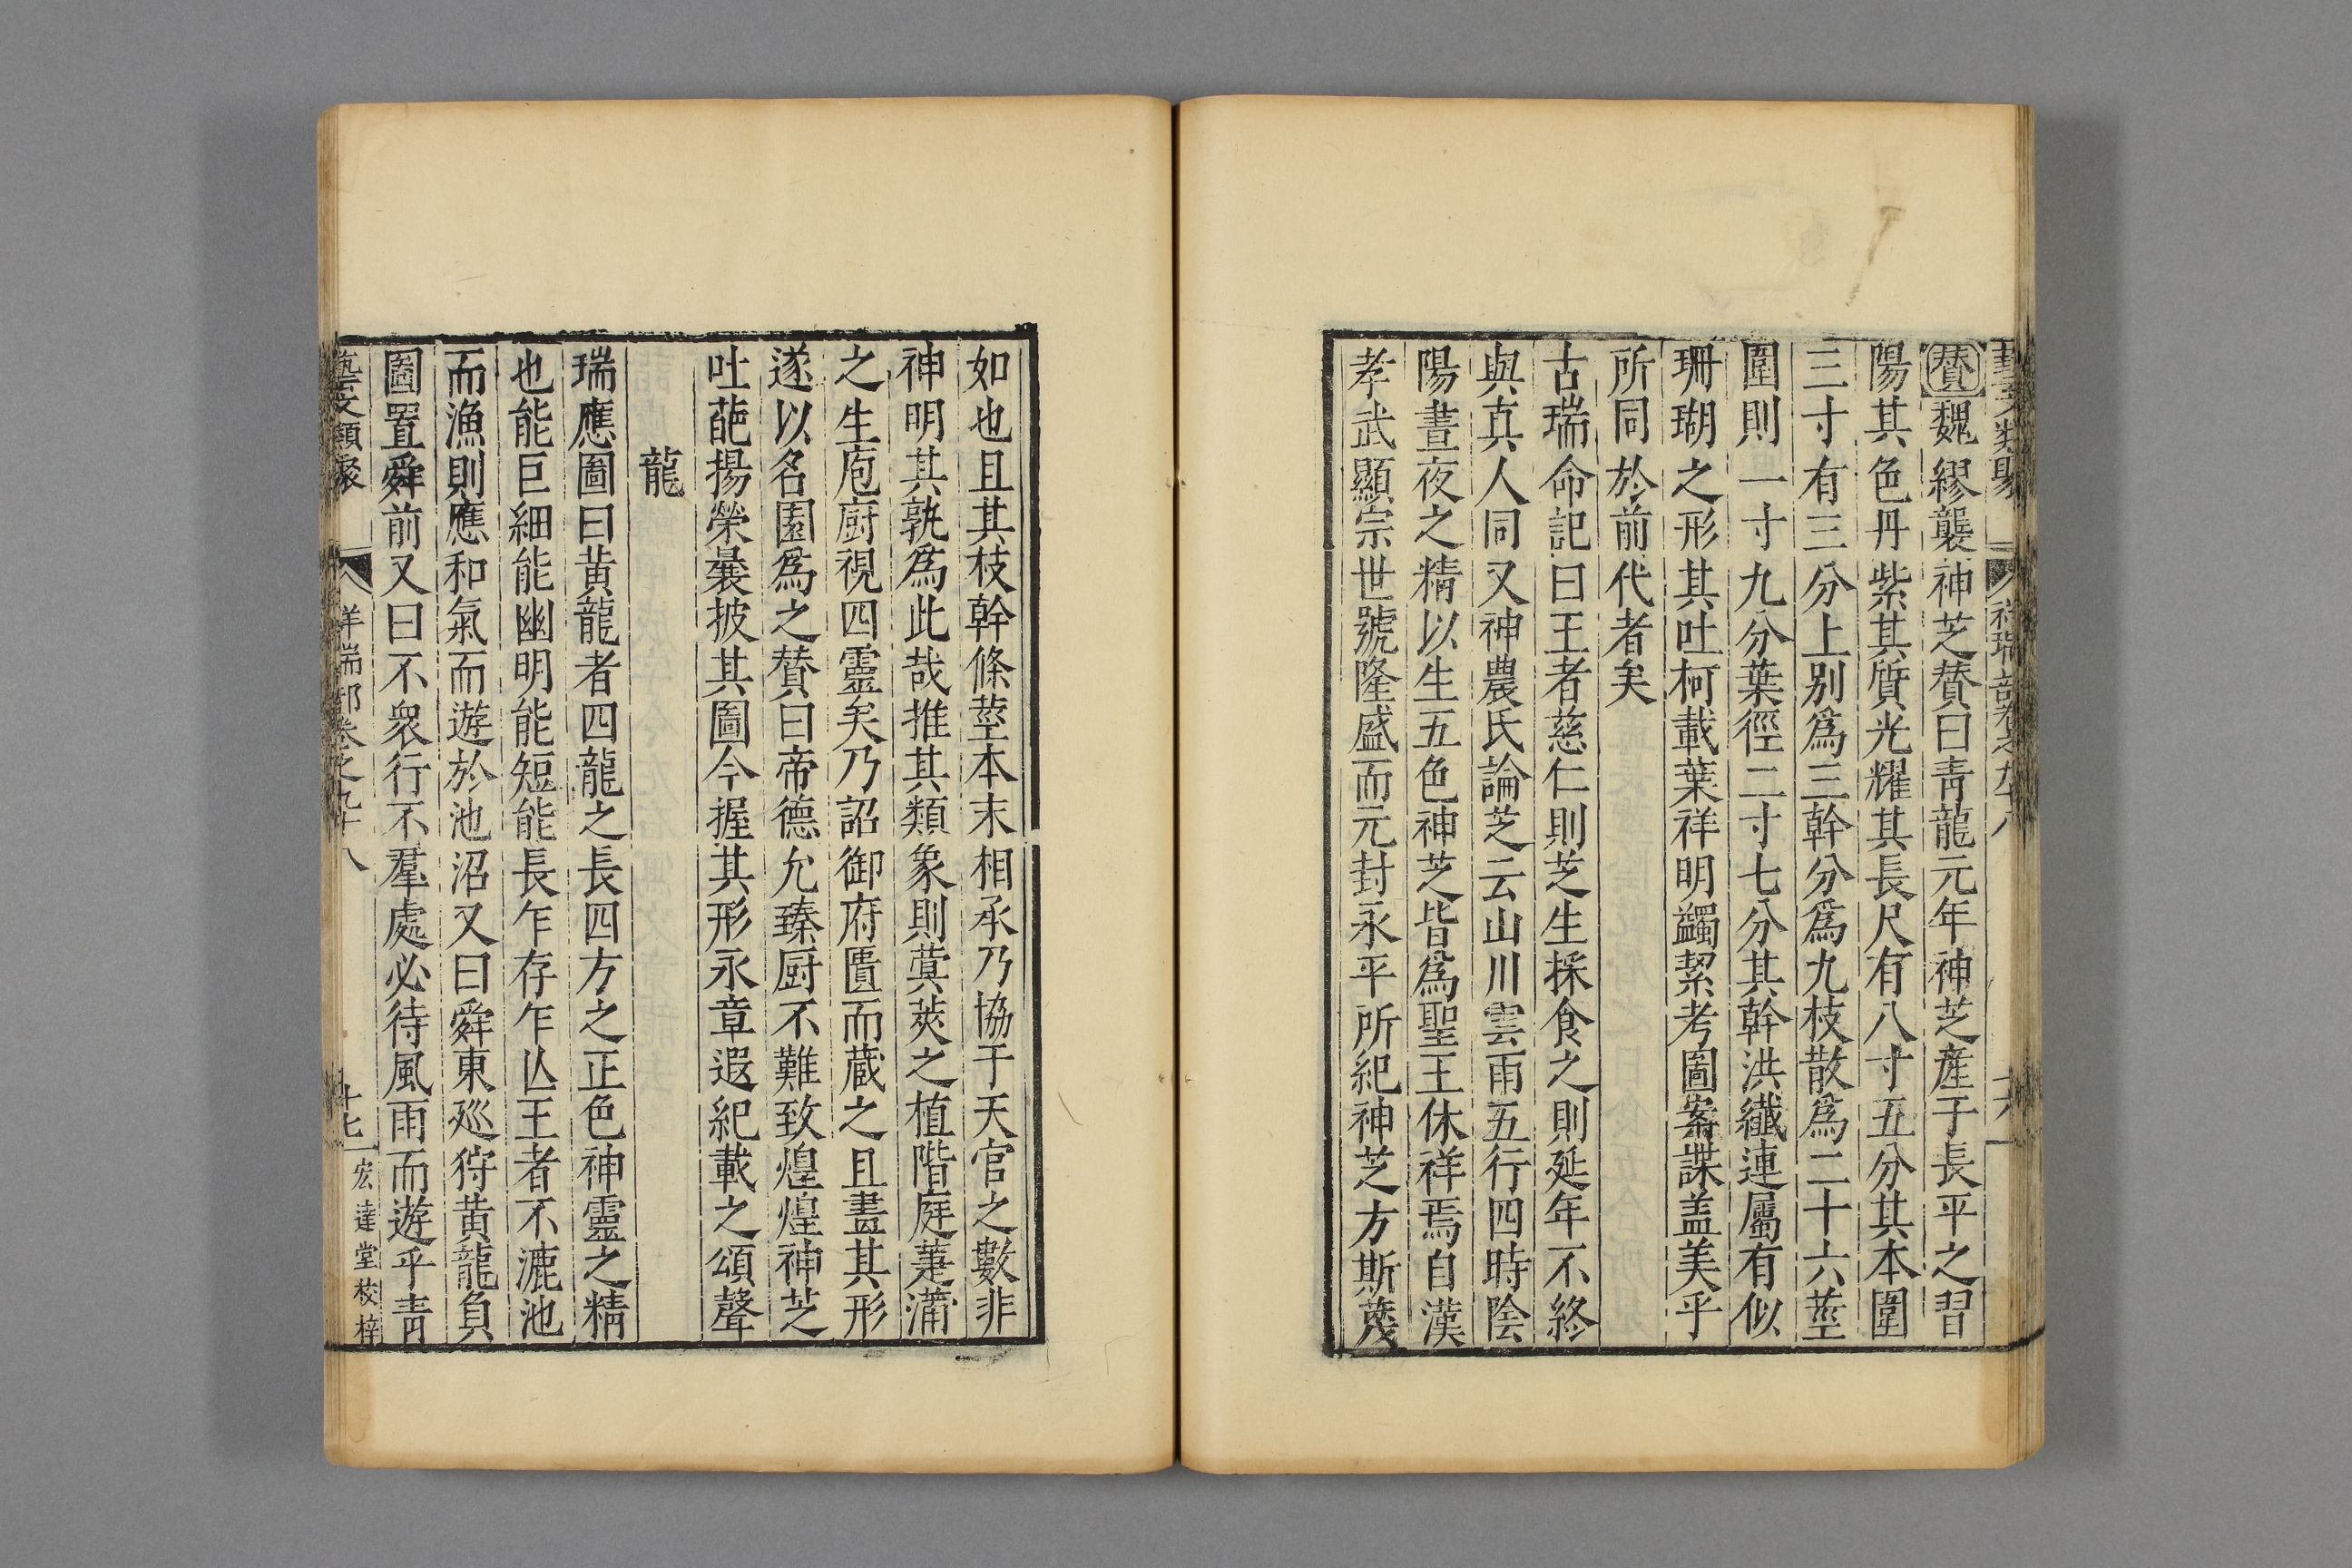 藝文類聚 祥瑞部卷之九十八 十六
賛魏繆襲神芝賛曰靑龍元年神芝産于長平之習
陽其色丹紫其質光耀其長尺有八寸五分其本圍
三寸有三分上别爲三幹分爲九枝散爲二十六莖
圍則一寸九分葉徑二寸七分其幹洪纎連屬有似
珊瑚之形其吐柯載葉祥明蠲絜考圖案諜盖美乎
所同於前代者矣
古瑞命記曰王者慈仁則芝生採食之則延年不終
與真人同又神農氏論芝云山川雲雨五行四時陰
陽晝夜之精以生五色神芝皆爲聖王休祥焉自漢
孝武顯宗世號隆盛而元封永平所紀神芝方斯蔑
如也且其枝幹條莖本末相承乃協于天官之數非
神明其孰爲此哉推其類象則蓂莢之植階庭萐蒲
之生庖厨視四靈矣乃詔御府匱而蔵之且畫其形
遂以名園爲之賛曰帝德允臻厨不難致煌煌神芝
吐葩揚榮曩披其圖今握其形永章遐紀載之頌聲
龍
瑞應圖曰黄龍者四龍之長四方之正色神靈之精
也能巨細能幽明能短能長乍存乍亾王者不漉池
而漁則應和氣而遊於池沼又曰舜東廵狩黄龍負
圖置舜前又曰不衆行不羣處必待風雨而遊乎靑
藝文類聚 祥瑞部卷之九十八 十七 宏達堂校梓